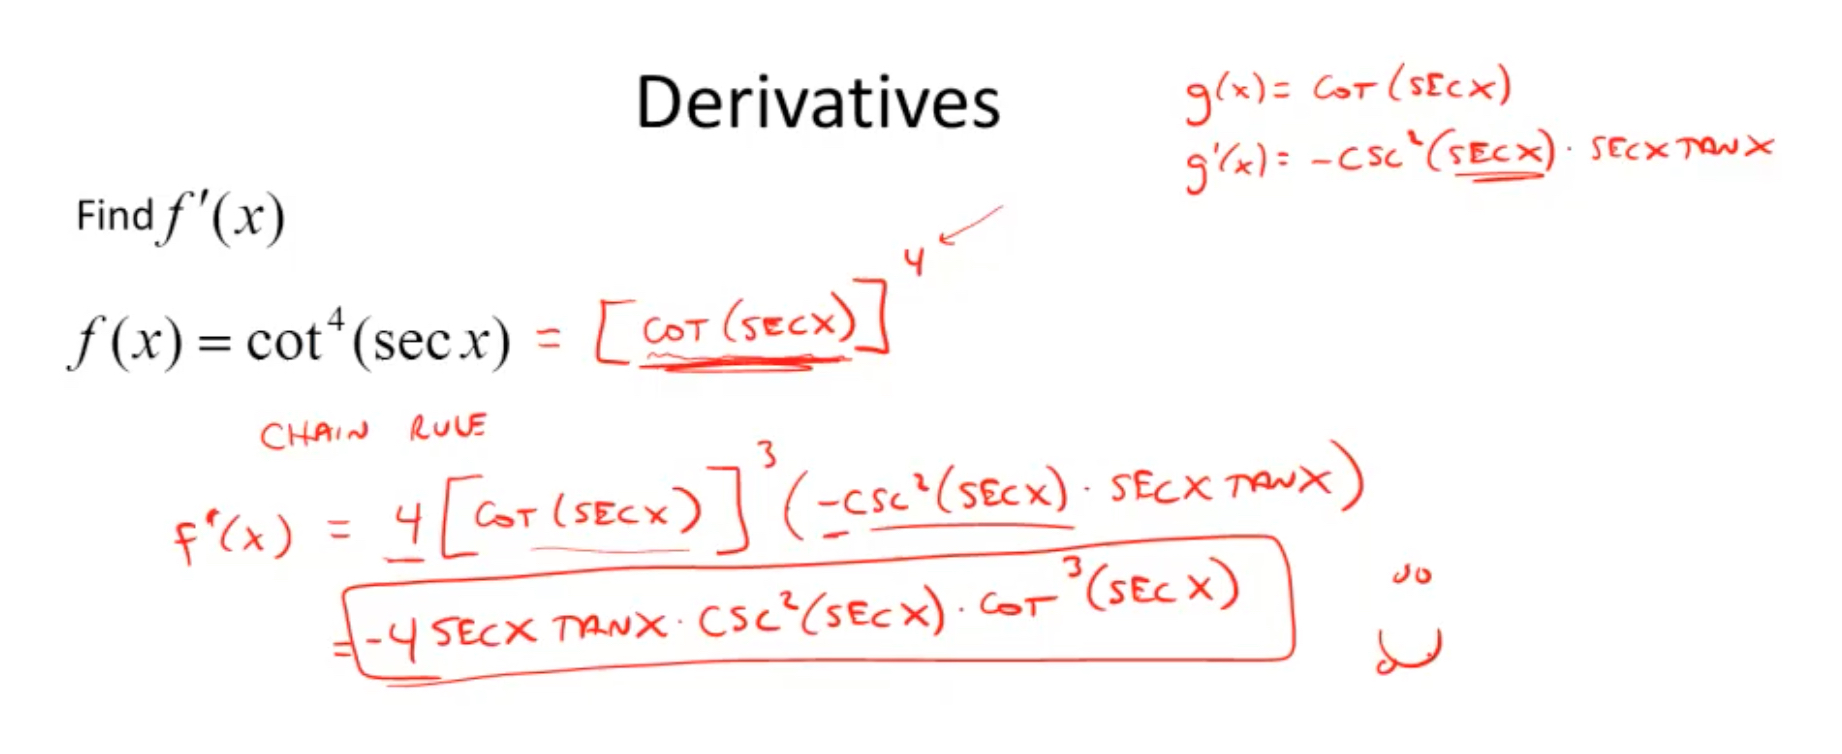 Derivatives
g(x) = COT (SECX)
g'(x) = -CSC²(SECX) · SECX TANX
Find f'(x)
f(x) = cot⁴(sec x) = [COT (SECX)]⁴
CHAIN RULE
f'(x) = 4 [COT (SECX)]³ (-CSC²(SECX) · SECX TANX)
= -4 SECX TANX · CSC²(SECX) · COT³(SECX)